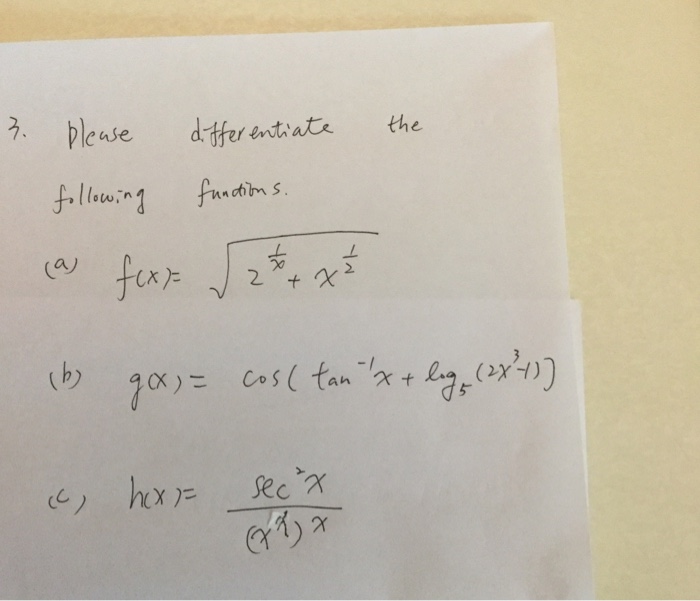 3. please differentiate the
following functions.
(a) f(x)= √(2^(1/x) + x^(1/2))
(b) g(x)= cos( tan⁻¹x + log₅ (2x³-1))
(c) h(x)= sec²x / (x^x)^x